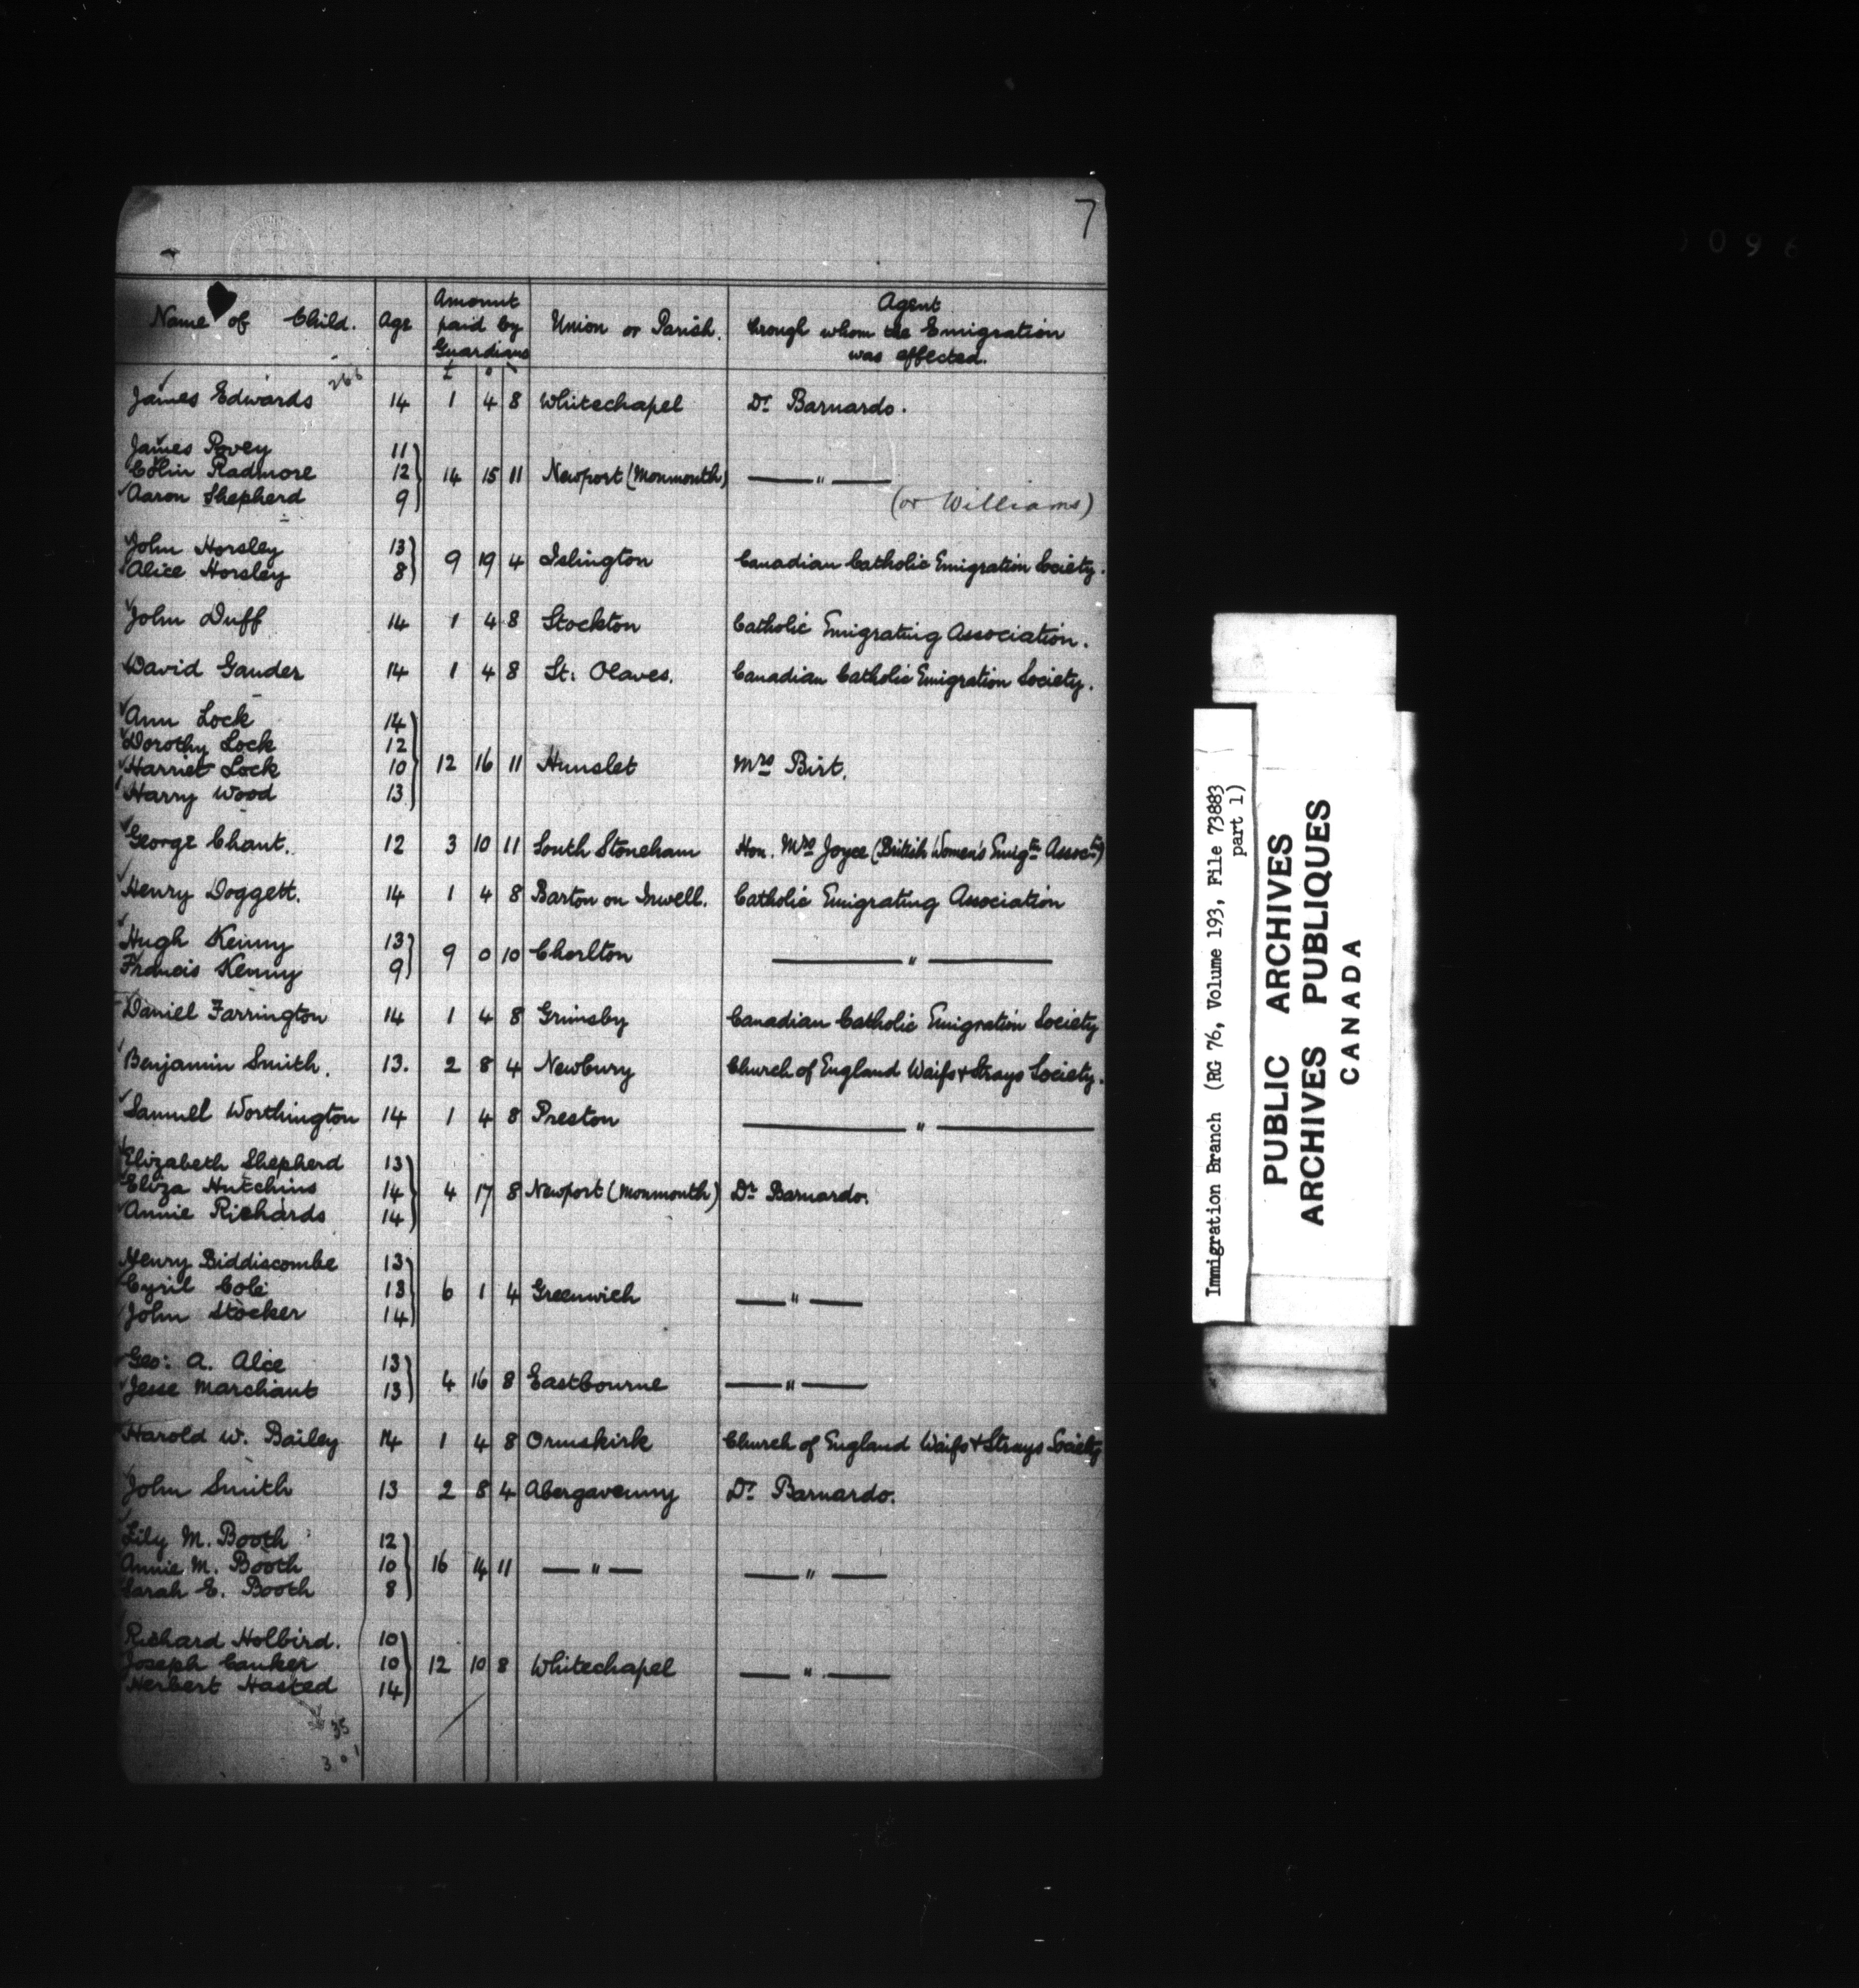 7
Name of Child. Age Amount paid by Guardians Union or Parish. Agent through whom the Emigration was effected.
£
266
James Edwards 14 1 4 8 Whitechapel Dr Barnardo.
James Povey 11
Colin Radmore 12 14 15 11 Newport (Monmouth) — " —
Aaron Shepherd 9 (or Williams)
John Horsley 13
Alice Horsley 8 9 19 4 Islington Canadian Catholic Emigration Society.
John Duff 14 1 4 8 Stockton Catholic Emigrating Association.
David Gauder 14 1 4 8 St. Olaves. Canadian Catholic Emigration Society.
Ann Lock 14
Dorothy Lock 12
Harriet Lock 10 12 16 11 Hunslet Mrs Birt.
Harry Wood 13
George Chant. 12 3 10 11 South Stoneham Hon. Mrs Joyce (British Women's Emigtn Assoctn)
Henry Doggett. 14 1 4 8 Barton on Irwell. Catholic Emigrating Association
Hugh Kenny 13
Francis Kenny 9 9 0 10 Chorlton — " —
Daniel Farrington 14 1 4 8 Grimsby Canadian Catholic Emigration Society
Benjamin Smith. 13. 2 8 4 Newbury Church of England Waifs & Strays Society.
Samuel Worthington 14 1 4 8 Preston — " —
Elizabeth Shepherd 13
Eliza Hutchins 14 4 17 8 Newport (Monmouth) Dr Barnardo.
Annie Richards 14
Henry Biddiscombe 13
Cyril Cole 13 6 1 4 Greenwich — " —
John Stocker 14
Geo: A. Alce 13
Jesse Marchant 13 4 16 8 Eastbourne — " —
Harold W. Bailey 14 1 4 8 Ormskirk Church of England Waifs & Strays Society
John Smith 13 2 8 4 Abergavenny Dr Barnardo.
Lily M. Booth 12
Annie M. Booth 10 16 14 11 — " — — " —
Sarah E. Booth 8
Richard Holbird. 10
Joseph Cauker 10 12 10 8 Whitechapel — " —
Herbert Hasted 14
35
301
Immigration Branch (RG 76, Volume 193, File 73883
part 1)
PUBLIC ARCHIVES
ARCHIVES PUBLIQUES
CANADA